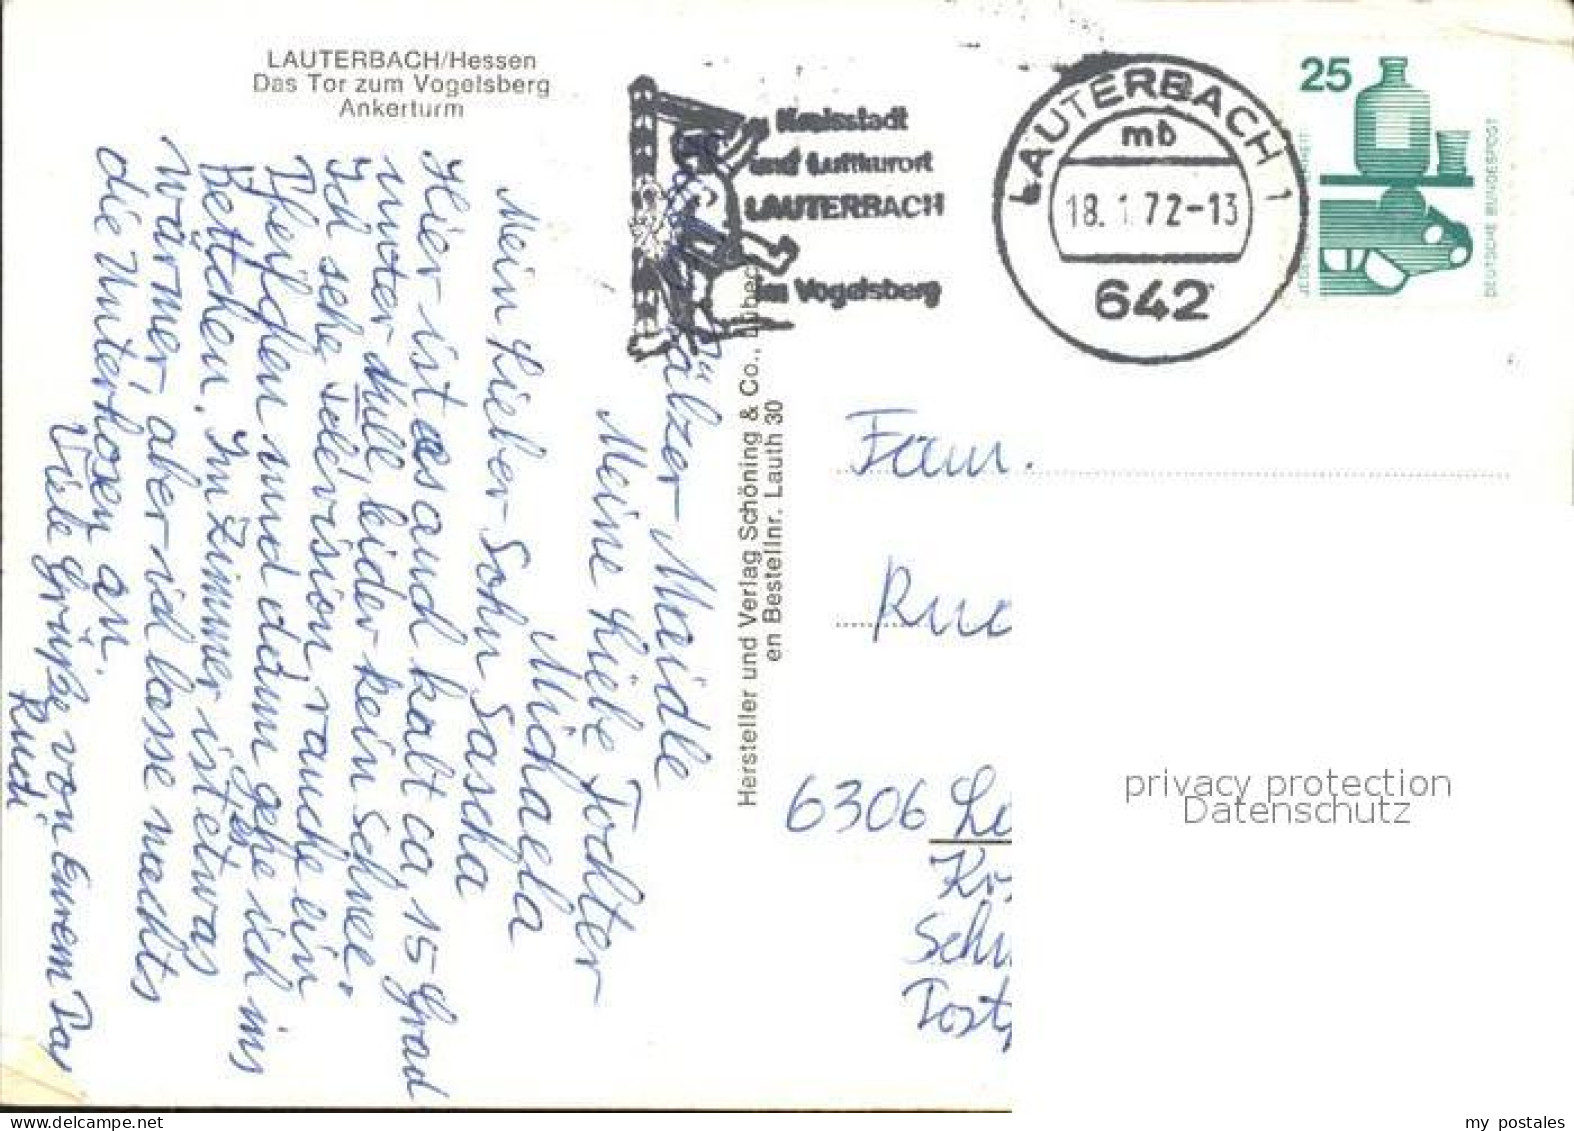 LAUTERBACH/Hessen
Das Tor zum Vogelsberg
Ankerturm
Kreisstadt
und Luftkurort
LAUTERBACH
im Vogelsberg
LAUTERBACH 1
mb
18.1.72-13
642
25
JEDERZEIT SICHERHEIT
DEUTSCHE BUNDESPOST
Hersteller und Verlag Schöning & Co., Lübeck
en Bestellnr. Lauth 30
Pfälzer Maidle
Meine Liebe Tochter
Michaela
Mein Lieber Sohn Sascha
Hier ist es auch kalt ca, 15 Grad
unter Null, leider kein Schnee.
Ich sehe Television, rauche ein
Pfeifchen und dann gehe ich ins
Bettchen. Im Zimmer ist etwas
wärmer, aber ich lasse nachts
die Unterhosen an.
Viele Grüße von Eurem Pa
Rudi
Fam.
6306
privacy protection
Datenschutz
my postales